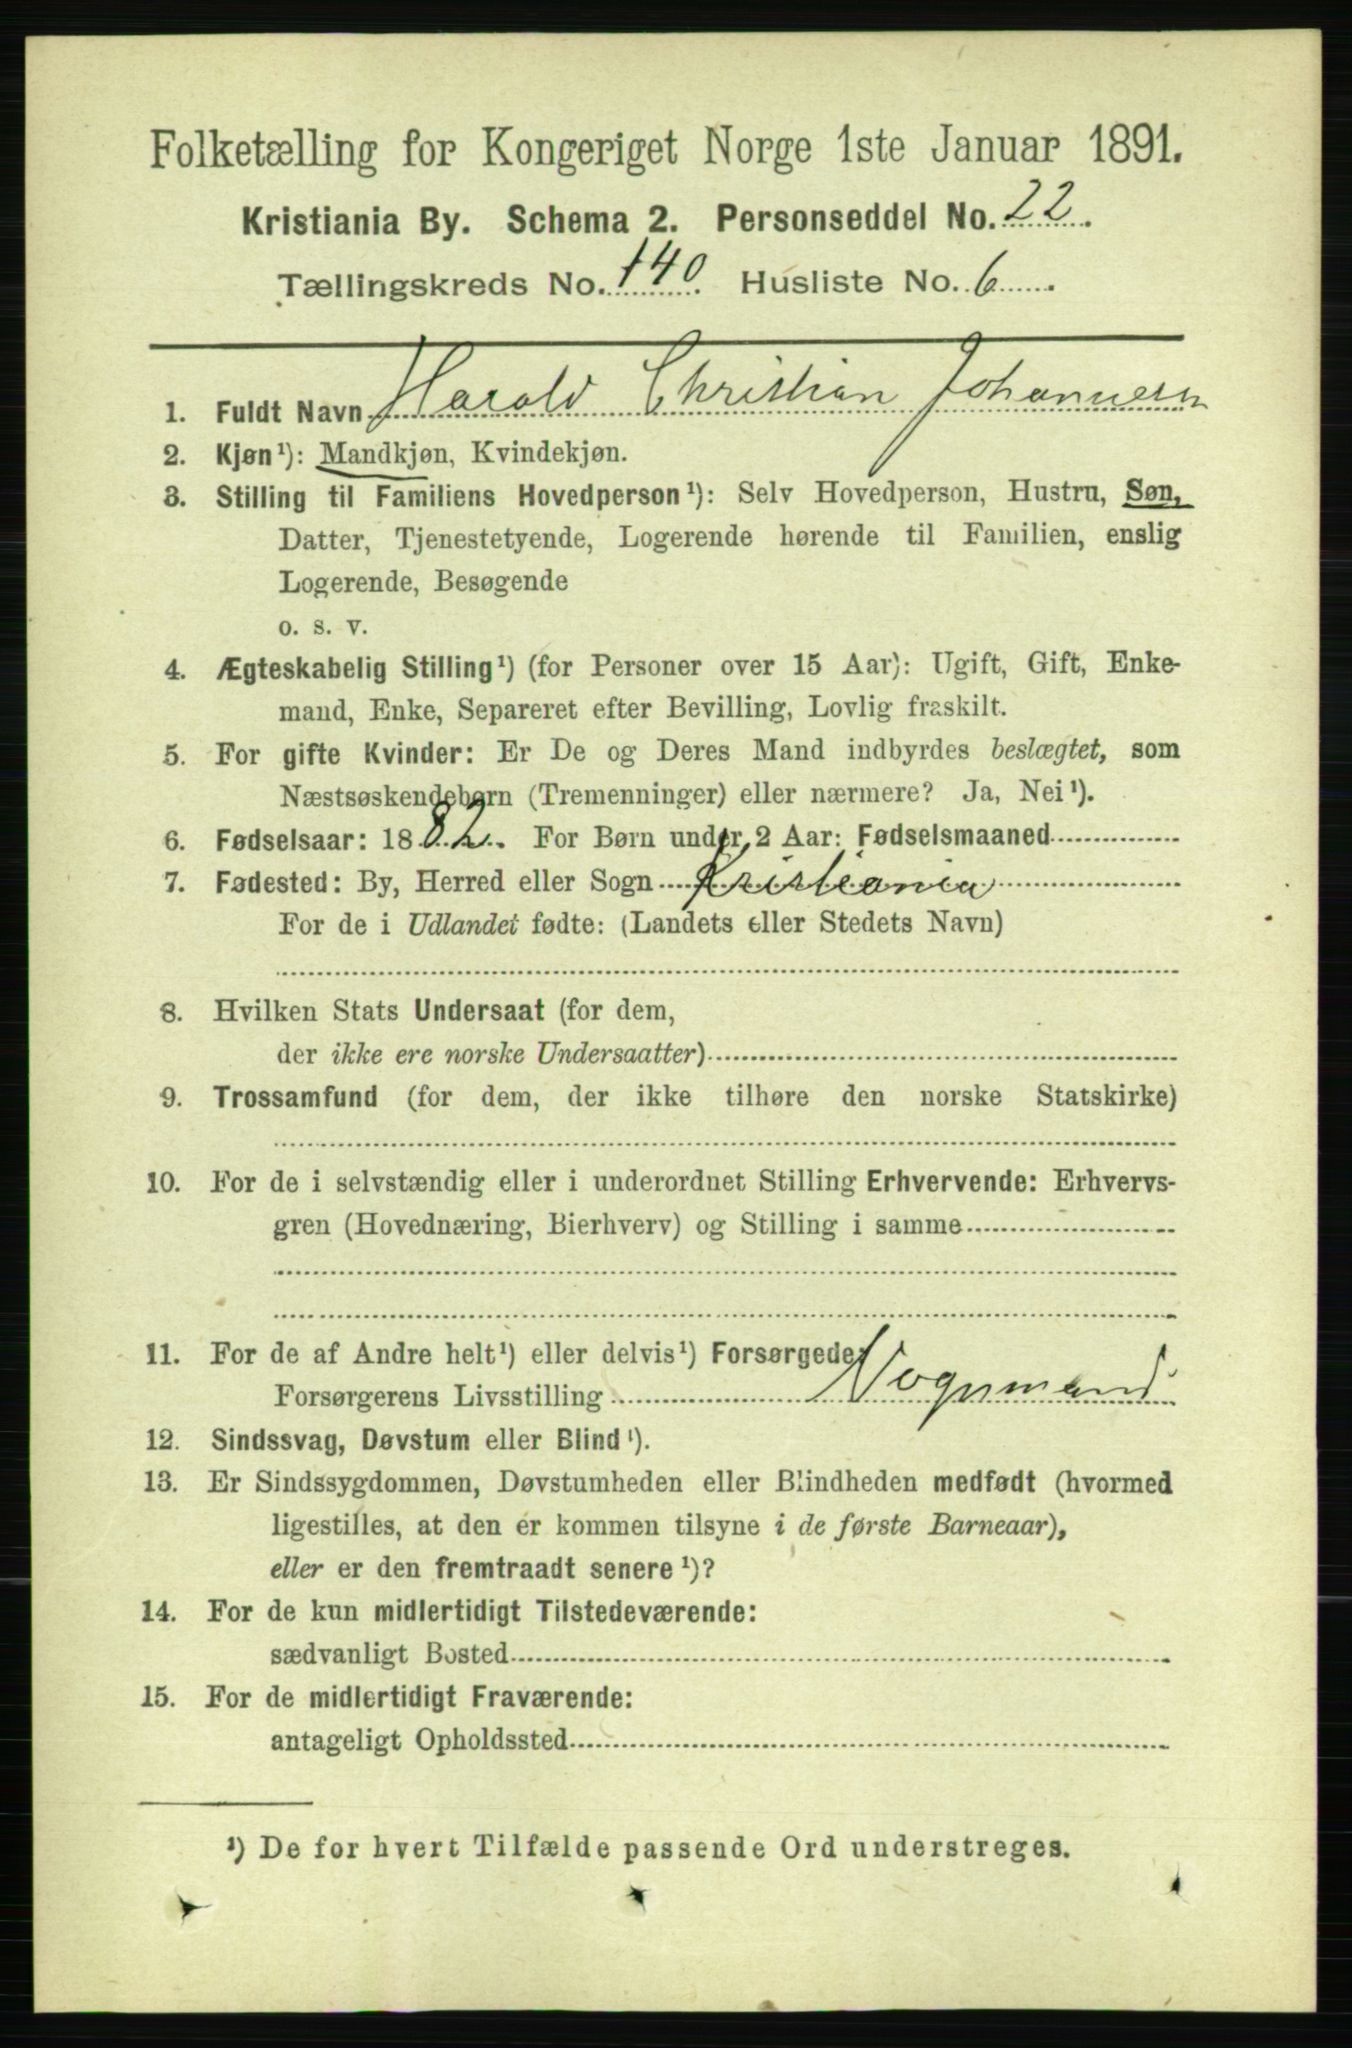 Folketælling for Kongeriget Norge 1ste Januar 1891.
Kristiania By. Schema 2. Personseddel No. 22.
Tællingskreds No. 140. Husliste No. 6
1. Fuldt Navn Harald Christian Johannesen
2. Kjøn¹): Mandkjøn, Kvindekjøn.
3. Stilling til Familiens Hovedperson¹): Selv Hovedperson, Hustru, Søn,
Datter, Tjenestetyende, Logerende hørende til Familien, enslig
Logerende, Besøgende
o. s. v.
4. Ægteskabelig Stilling¹) (for Personer over 15 Aar): Ugift, Gift, Enke-
mand, Enke, Separeret efter Bevilling, Lovlig fraskilt.
5. For gifte Kvinder: Er De og Deres Mand indbyrdes beslægtet, som
Næstsøskendebørn (Tremenninger) eller nærmere? Ja, Nei¹).
6. Fødselsaar: 1882. For Børn under 2 Aar: Fødselsmaaned
7. Fødested: By, Herred eller Sogn Kristiania
For de i Udlandet fødte: (Landets eller Stedets Navn)
8. Hvilken Stats Undersaat (for dem,
der ikke ere norske Undersaatter)
9. Trossamfund (for dem, der ikke tilhøre den norske Statskirke)
10. For de i selvstændig eller i underordnet Stilling Erhvervende: Erhvervs-
gren (Hovednæring, Bierhverv) og Stilling i samme
11. For de af Andre helt¹) eller delvis¹) Forsørgede:
Forsørgerens Livsstilling Vognmand
12. Sindssvag, Døvstum eller Blind¹).
13. Er Sindssygdommen, Døvstumheden eller Blindheden medfødt (hvormed
ligestilles, at den er kommen tilsyne i de første Barneaar),
eller er den fremtraadt senere¹)?
14. For de kun midlertidigt Tilstedeværende:
sædvanligt Bosted
15. For de midlertidigt Fraværende:
antageligt Opholdssted
¹) De for hvert Tilfælde passende Ord understreges.